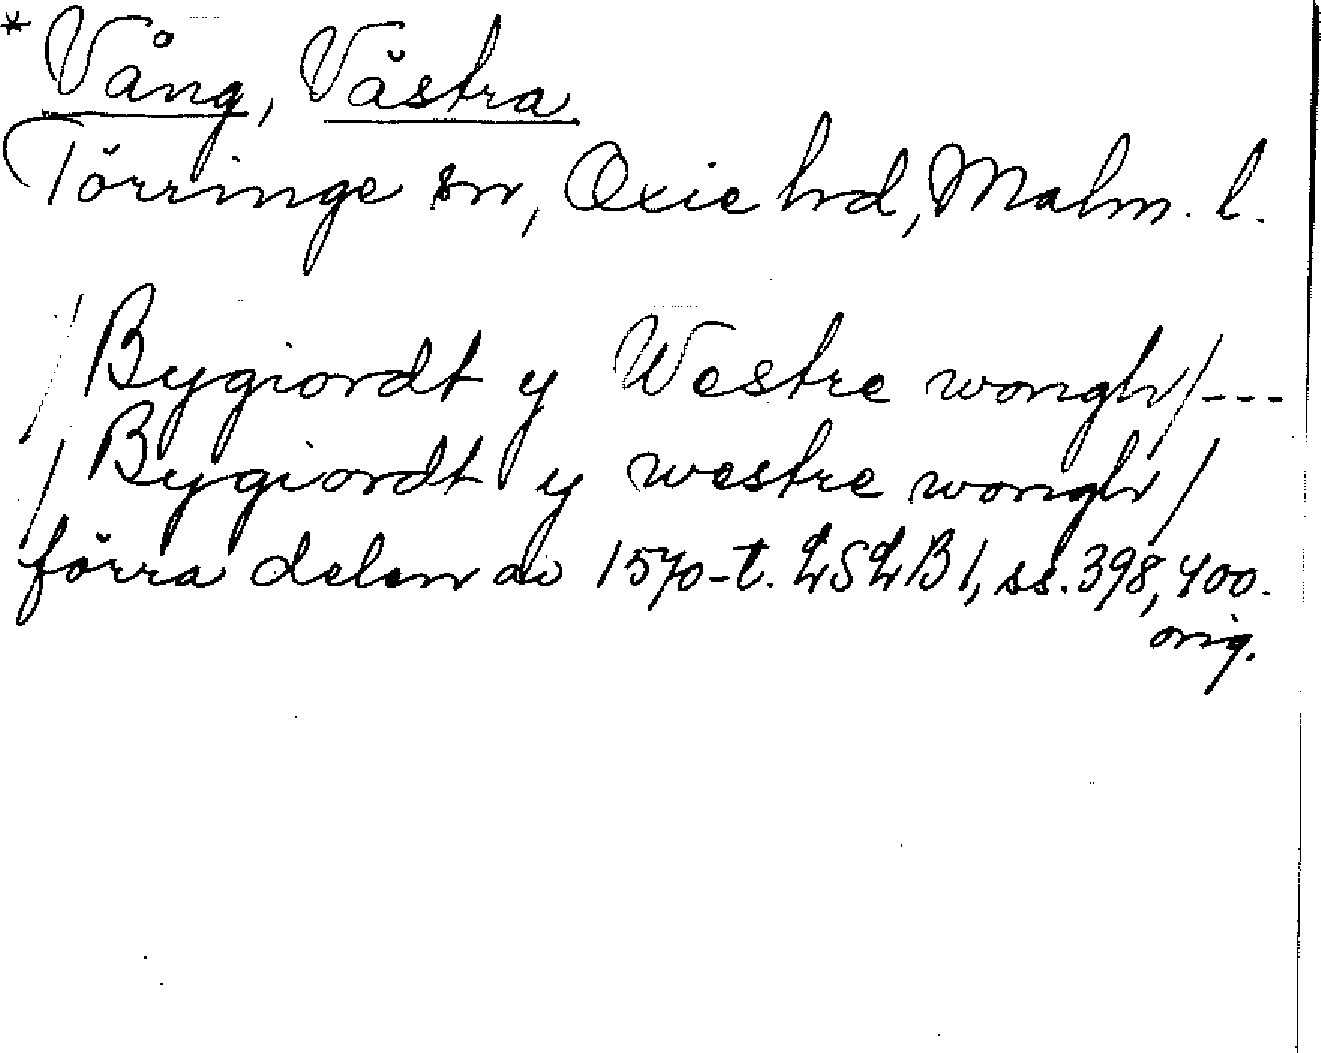 * Vång, Västra
Törringe sn, Oxie hrd, Malm. l.
/Bygiordt y Westre wongh/---
/Bygiordt y westre wongh/
förra delen av 1570-t. LSLB1, ss. 398, 400.
orig.